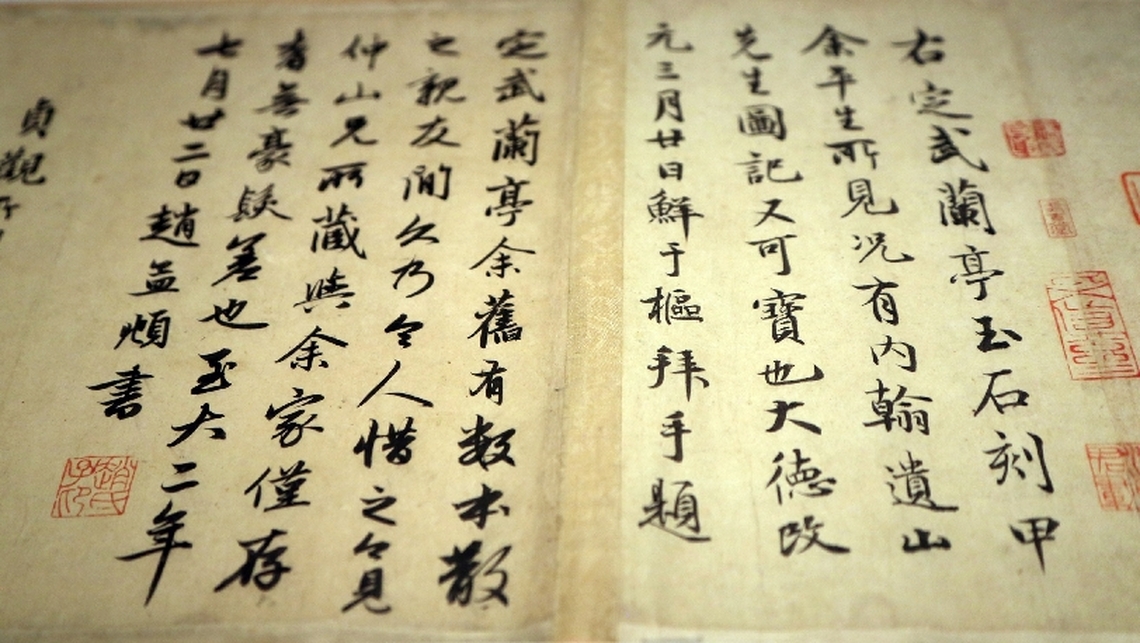 右定武蘭亭玉石刻甲
余平生所見況有内翰遺山
先生圖記又可寶也大德改
元三月廿日鮮于樞拜手題
定武蘭亭余舊有數本散
之親友間久乃令人惜之今見
仲山兄所藏與余家僅存
者無豪髮差也至大二年
七月廿二日趙孟頫書
趙氏子昂
貞觀